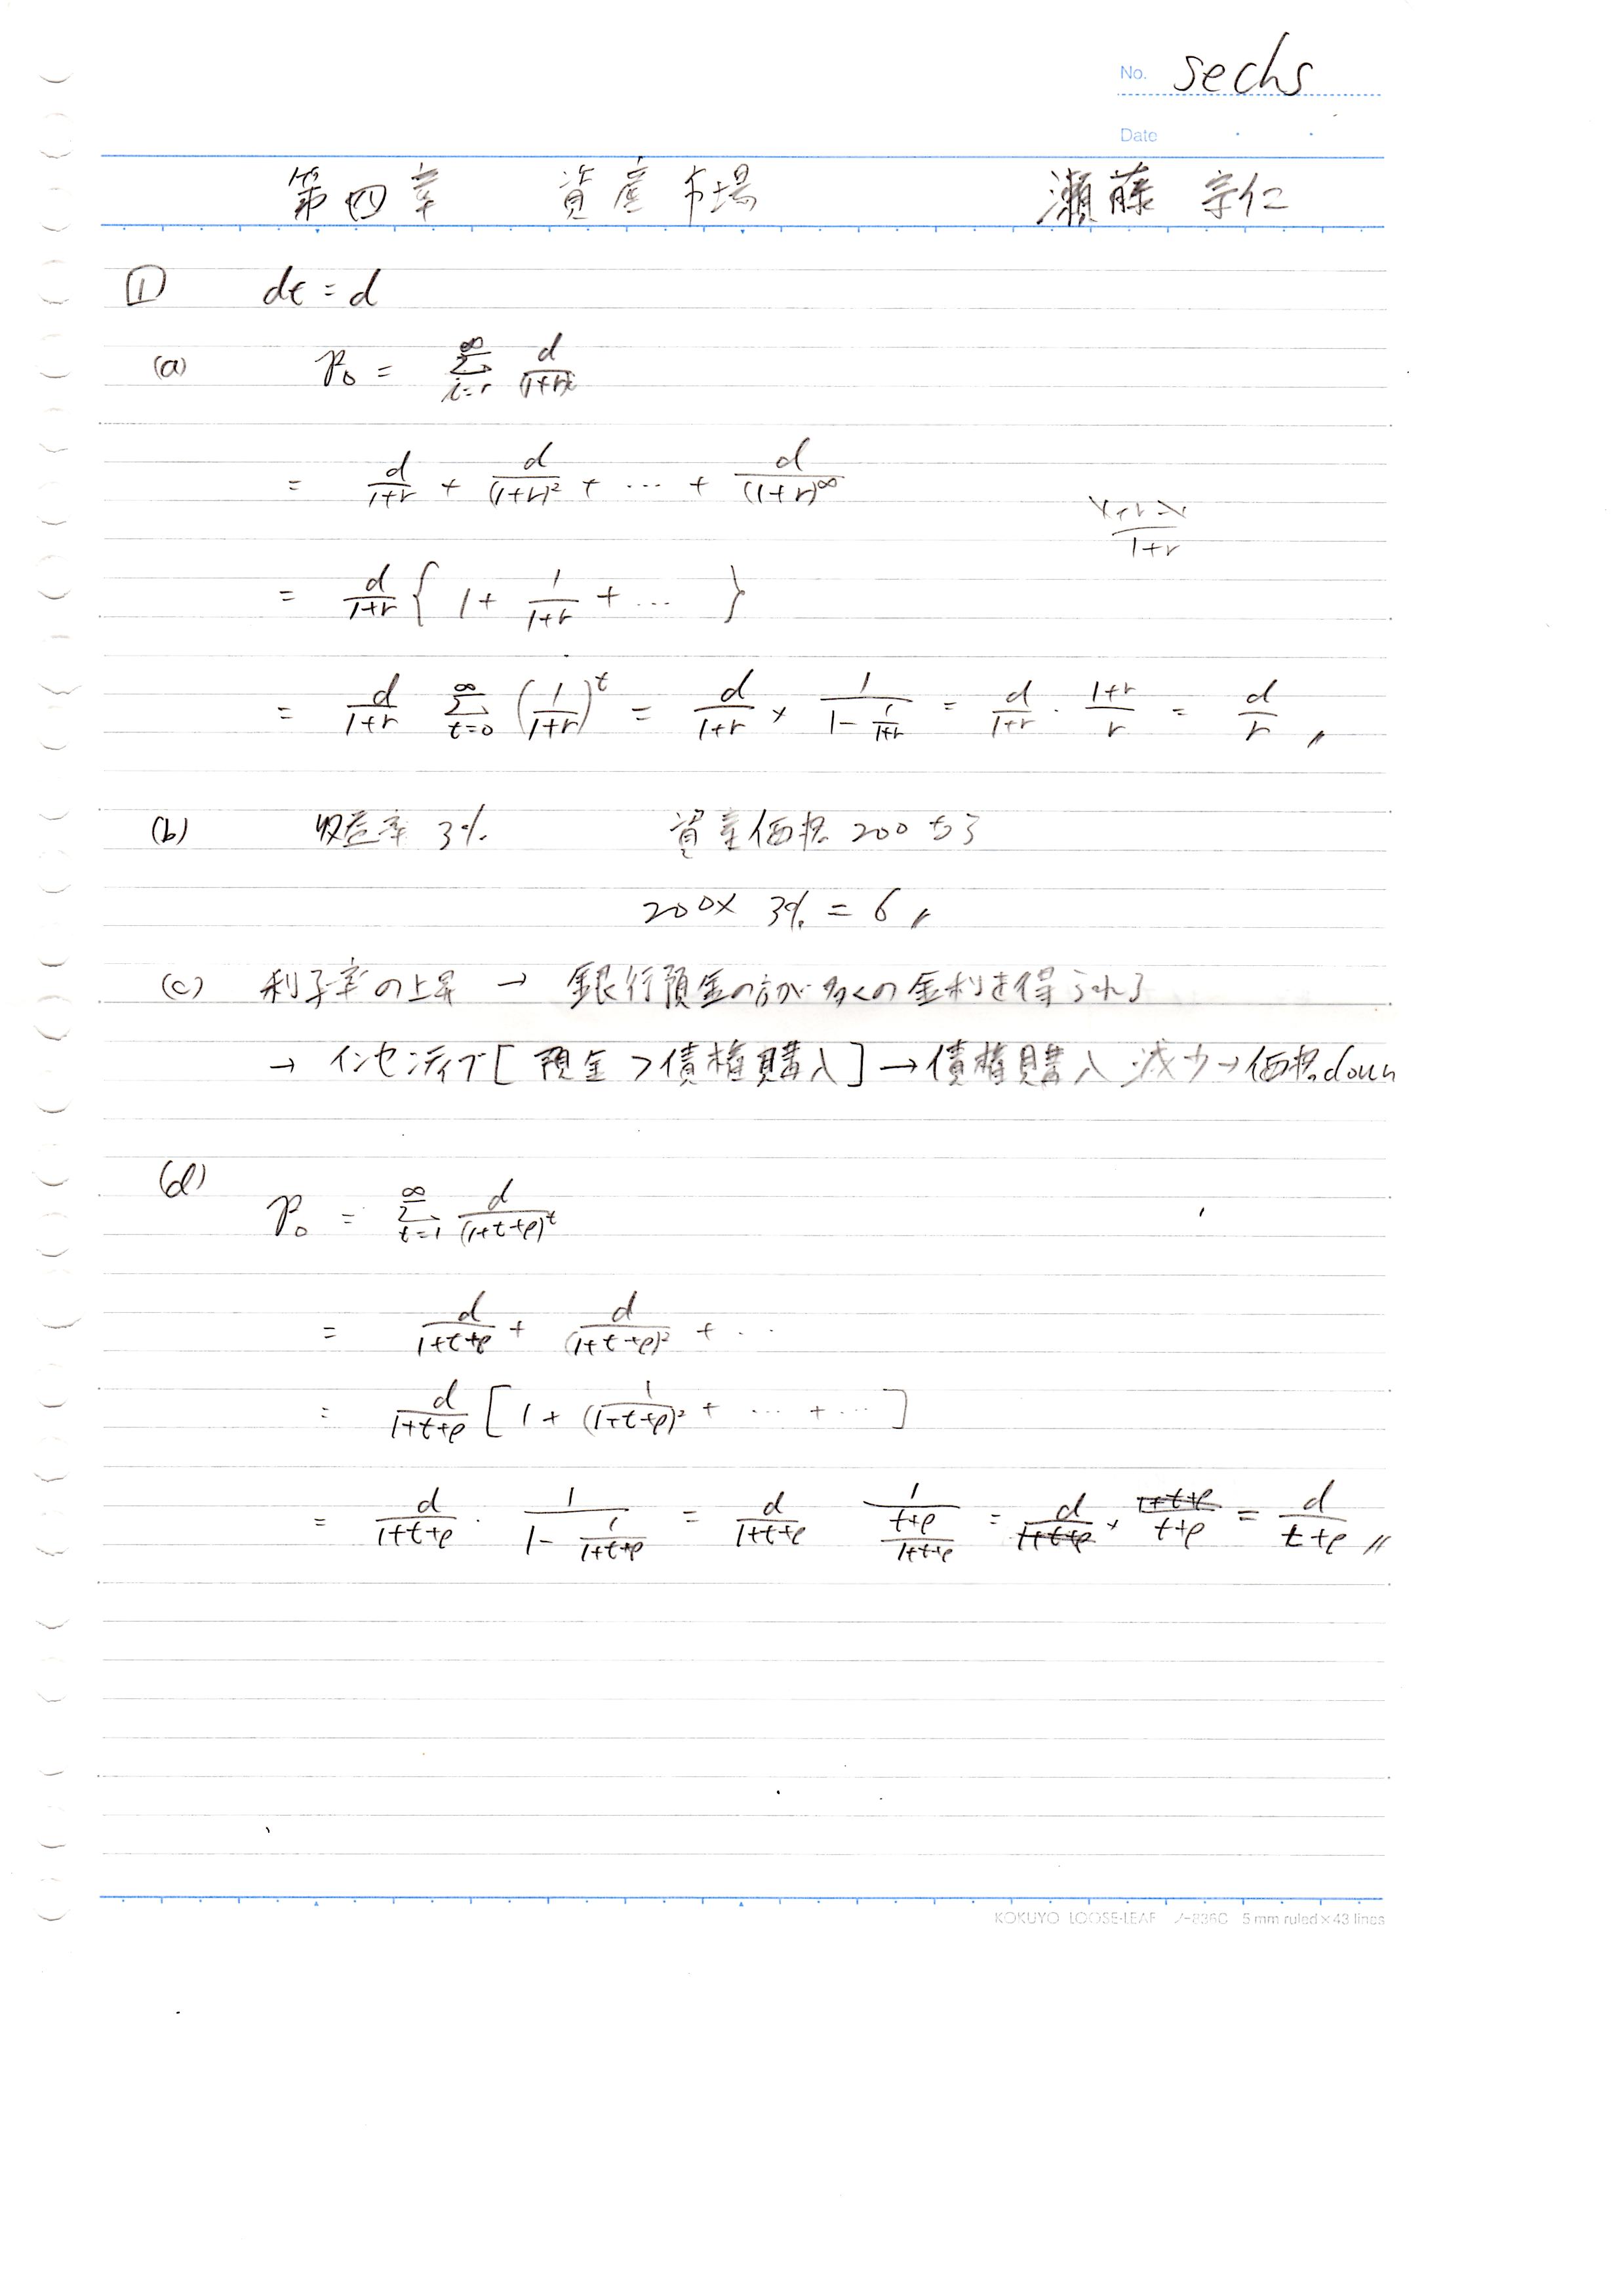 No. sechs
Date
第四章 資産市場 瀬藤 宗仁
① dt = d
(a) P₀ = Σ_{i=1}^{∞} d/(1+r)^i
= d/(1+r) + d/(1+r)² + … + d/(1+r)^∞
1+r-1/1+r
= d/(1+r) { 1 + 1/(1+r) + … }
= d/(1+r) Σ_{t=0}^{∞} (1/(1+r))^t = d/(1+r) × 1/(1 - 1/(1+r)) = d/(1+r) · (1+r)/r = d/r 〃
(b) 収益率 3% 資産価格 200 だから
200 × 3% = 6 〃
(c) 利子率の上昇 → 銀行預金の方が多くの金利を得られる
→ インセンティブ [ 預金 > 債権購入 ] → 債権購入 減少 → 価格 down
(d)
P₀ = Σ_{t=1}^{∞} d/(1+t+ρ)^t
= d/(1+t+ρ) + d/(1+t+ρ)² + ‥
= d/(1+t+ρ) [ 1 + 1/(1+t+ρ)² + … + … ]
= d/(1+t+ρ) · 1/(1 - 1/(1+t+ρ)) = d/(1+t+ρ) 1/((t+ρ)/(1+t+ρ)) = d/(1+t+ρ) × (1+t+ρ)/(t+ρ) = d/(t+ρ) 〃
KOKUYO LOOSE-LEAF ノ-836C 5 mm ruled × 43 lines